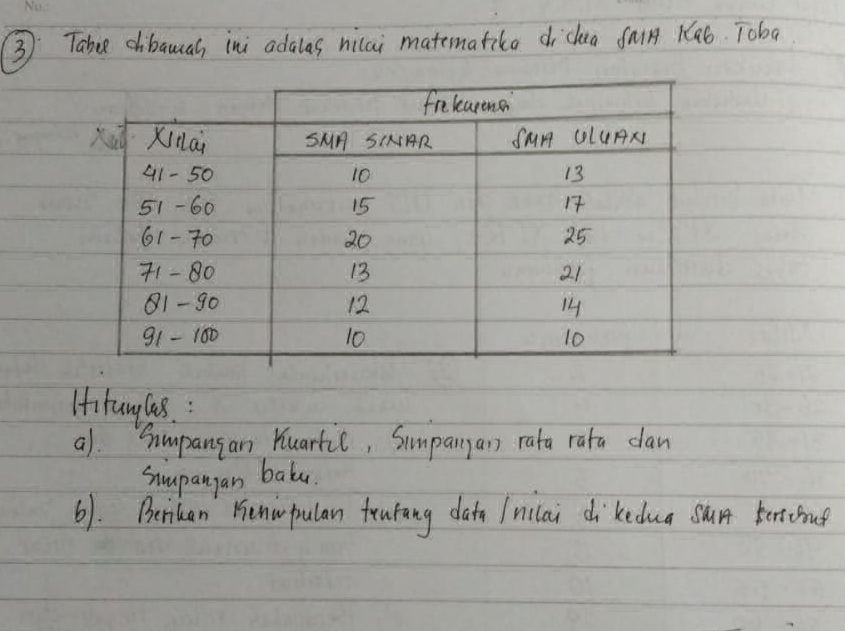 No.:
3) Tabel dibawah ini adalah nilai matematika di dua SMA Kab. Toba.
frekuensi
Nilai SMA SINAR SMA ULUAN
41 - 50 10 13
51 - 60 15 17
61 - 70 20 25
71 - 80 13 21
81 - 90 12 14
91 - 100 10 10
Hitunglah :
a). Simpangan Kuartil, Simpangan rata rata dan
Simpangan baku.
b). Berikan Kesimpulan tentang data / nilai di kedua SMA tersebut